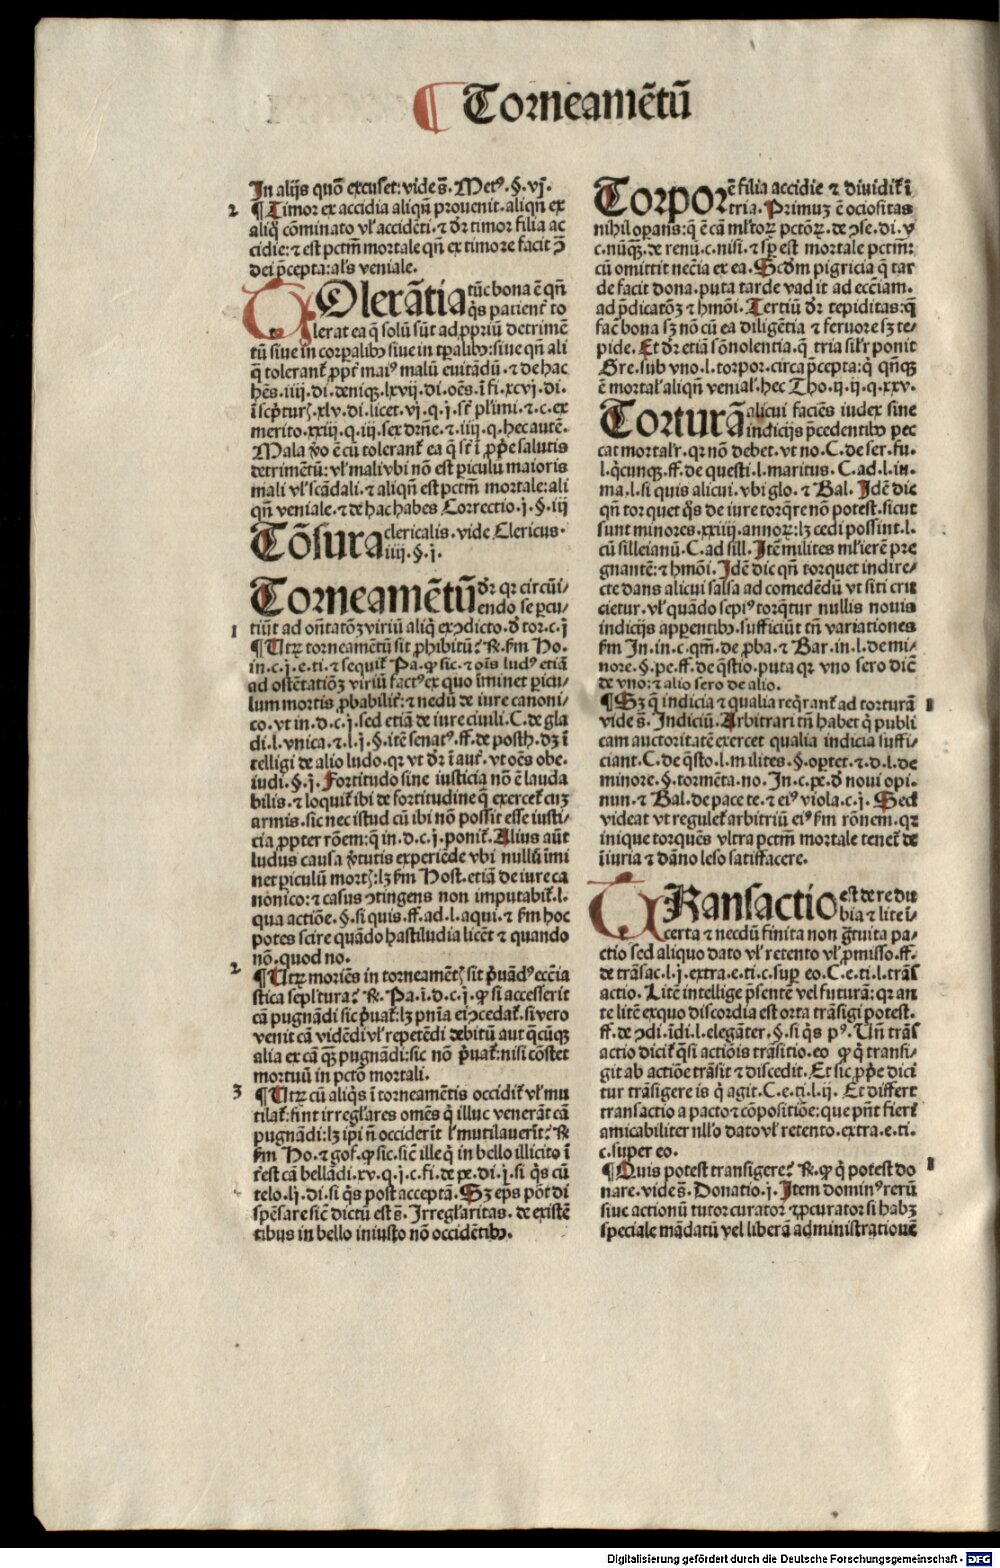 ¶ Torneamētū
In alijs quō excuset: vide s̄. Metꝰ. §. vj.
2 ¶ Timor ex accidia aliqñ prouenit. aliqñ ex
aliq̄ cōminato vl' accidēti. ⁊ dr̄ timor filia ac
cidie: ⁊ est pctm̄ mortale qñ ex timore facit ꝯ̄
dei p̄cepta: al's veniale.
TOlerātia tūc bona ē qñ
q̇s patienr̄ to
lerat ea q̄ solū sūt ad ꝓpriū detrimē
tū siue in corꝑalibꝰ siue in tꝑalibꝰ: siue qñ ali
q̄ tolerant̄ ꝓpt̄ maiꝰ malū euitādū. ⁊ de hac
hēs. iiii. di. deniqꝫ. lxvij. di. oēs. ī fi. xcvj. di.
merito. xxiij. q. iij. sex dr̄ne. ⁊. iiij. q. hec autē.
Mala v̊o ē cū tolerant̄ ea q̄ st̄ ī ꝓpe salutis
detrimētū: vl' mali vbi nō est ꝑiculū maioris
mali vl' scādali. ⁊ aliqñ est pctm̄ mortale: ali
qñ veniale. ⁊ de hac habes Correctio. j. §. iij
Tōsura clericalis. vide Clericus.
iiij. §. j.
Torneamētū dr̄ qꝛ circūi-
endo se ꝑcu-
1 tiūt ad oñtatōꝫ viriū aliq̄ ex ꝯdicto. d̄ tor. c. j
¶ Utꝝ torneamētū sit ꝓhibitū? ꝶ. ẜm Ho.
in. c. j. e. ti. ⁊ sequit̄ Pa. ꝙ sic. ⁊ oīs ludꝰ etiā
ad ostētatiōꝫ viriū factꝰ ex quo īminet ꝑicu-
lum mortis ꝓbabilit̄: ⁊ nedū de iure canoni-
co. vt in. d. c. j. sed etiā de iure ciuili. C. de gla
di. l. vnica. ⁊. l. j. §. itē senatꝰ. ff. de posth. dꝫ ī
telligi de alio ludo. qꝛ vt dr̄ ī aut̄. vt oēs obe.
iudi. §. j. Fortitudo sine iusticia nō ē lauda
bilis. ⁊ loquit̄ ibi de fortitudine q̄ exercet̄ cuꝫ
armis. sic nec istud cū ibi nō possit esse iusti-
cia ꝓpter rōem: q̄ in. d. c. j. ponit̄. Alius aūt
ludus causa v̊tutis experiēde vbi nullū īmi
net ꝑiculū mort̄: lꝫ ẜm Host. etiā de iure ca
nōnico: ⁊ casus ꝯtingens non imputabit̄. l.
qua actiōe. §. si quis. ff. ad. l. aqui. ⁊ ẜm hoc
potes scire quādo hastiludia licēt ⁊ quando
nō. quod no.
2 ¶ Utꝝ moriēs in torneamēt̄ sit p̄uādꝰ eccīa
stica sepl'tura? ꝶ. Pa. ī. d. c. j. ꝙ si accesserit
cā pugnādi sic p̄uat̄: lꝫ pnīa ei ꝯcedat̄. si vero
venit cā vidēdi vl' repetēdi debitū aut q̄cūqꝫ
alia ex cā qꝫ pugnādi: sic nō p̄uat̄: nisi cōstet
mortuū in pctō mortali.
3 ¶ Utꝝ cū aliq̇s ī torneamētis occidit̄ vl' mu
tilat̄: sint irregl'ares omēs q̇ illuc venerāt cā
pugnādi: lꝫ ip̄i ñ occiderīt l' mutilauerīt? ꝶ
ẜm Ho. ⁊ gof. ꝙ sic. sic̄ ille q̇ in bello illicito ī
t̄est cā bellādi. xv. q. j. c. fi. de pe. di. j. si q̇s cū
telo. lj. di. si q̇s post acceptā. Sꝫ ep̄s pōt di
spēsare sic̄ dictū est s̄. Irregl'aritas. de existē
tibus in bello iniusto nō occidētibꝰ.
Torpor ē filia accidie ⁊ diuidit̄ ī
tria. Primuꝫ ē ociositas
nihil oꝑans: q̄ ē cā ml'toꝝ pctōꝝ. de ꝯse. di. v
c. nūqꝫ. de renū. c. nisi. ⁊ sꝑ est mortale pctm̄:
cū omittit nec̄ia ex ea. Scd̄m pigricia q̄ tar
de facit dona. puta tarde vadit ad ecc̄iam.
ad p̄dicatōꝫ ⁊ hmōi. Tertiū dr̄ tepiditas: q̄
fac̄ bona sꝫ nō cū ea diligētia ⁊ feruore sꝫ te-
pide. Et dr̄ etiā sōnolentia. q̄ tria sil'r ponit
Gre. sub vno. l. torpor. circa p̄cepta: q̄ qñqꝫ
ē mortal' aliqñ venial'. hec Tho. ij. ij. q. xxv.
Torturā alicui faciēs iudex sine
indicijs p̄cedentibꝰ pec
cat mortal'r. qꝛ nō debet. vt no. C. de ser. fu.
l. q̄cunqꝫ. ff. de questi. l. maritus. C. ad. l. iu.
ma. l. si quis alicui. vbi glo. ⁊ Bal. Idē dic
qñ torquet q̇s de iure torq̄re nō potest. sicut
sunt minores. xxiiij. annoꝝ: lꝫ cedi possint. l.
cū silleianū. C. ad sill. Itē milites ml'ierē pre
gnantē: ⁊ hmōi. Idē dic qñ torquet indire-
cte dans alicui salsa ad comedēdū vt siti cru
cietur. vl' quādo sepiꝰ torq̄tur nullis nouis
indicijs apꝑentibꝰ. sufficiūt tn̄ variationes
ẜm In. in. c. qm̄. de ꝓba. ⁊ Bar. in. l. de mi-
nore. §. pe. ff. de q̄stio. puta qꝛ vno sero dic̄
de vno: ⁊ alio sero de alio.
¶ Sꝫ q̄ indicia ⁊ qualia req̇rant̄ ad torturā 1
vide s̄. Indiciū. Arbitrari tn̄ habet q̇ publi
cam auctoritatē exercet qualia indicia suffi-
ciant. C. de q̄sto. l. milites. §. oꝑtet. ⁊. d. l. de
minore. §. tormēta. no. In. c. pe. d̄ noui opi.
nun. ⁊ Bal. de pace te. ⁊ eiꝰ viola. c. j. Sed
videat vt regulet arbitriū eiꝰ ẜm rōnem. qꝛ
inique torquēs vltra pctm̄ mortale tenet̄ de
iīuria ⁊ dāno leso satisfacere.
TRansactio est de re du
bia ⁊ lite ī-
certa ⁊ necdū finita non g̊tuita pa-
ctio sed aliquo dato vl' retento vl' ꝓmisso. ff.
de trāsac. l. j. extra. e. ti. c. suꝑ eo. C. e. ti. l. trās
actio. Litē intellige p̄sentē vel futurā: qꝛ an
te litē ex quo discordia est orta trāsigi potest.
ff. de ꝯdi. īdi. l. elegāter. §. si q̇s pꝰ. Un̄ trās
actio dicit̄ q̇si actiōis trāsitio. eo ꝙ q̇ transi-
git ab actiōe trāsit ⁊ discedit. Et sic ꝓpe dici
tur trāsigere is q̇ agit. C. e. ti. l. ij. Et differt
transactio a pacto ⁊ cōpositiōe: que pn̄t fieri
amicabiliter nll'o dato vl' retento. extra. e. ti.
c. super eo.
¶ Quis potest transigere? ꝶ. ꝙ q̇ potest do 1
nare. vide s̄. Donatio. j. Item dominꝰ rerū
siue actionū tutor curator ⁊ ꝓcurator si habꝫ
speciale mādatū vel liberā administrationē
Digitalisierung gefördert durch die Deutsche Forschungsgemeinschaft - DFG